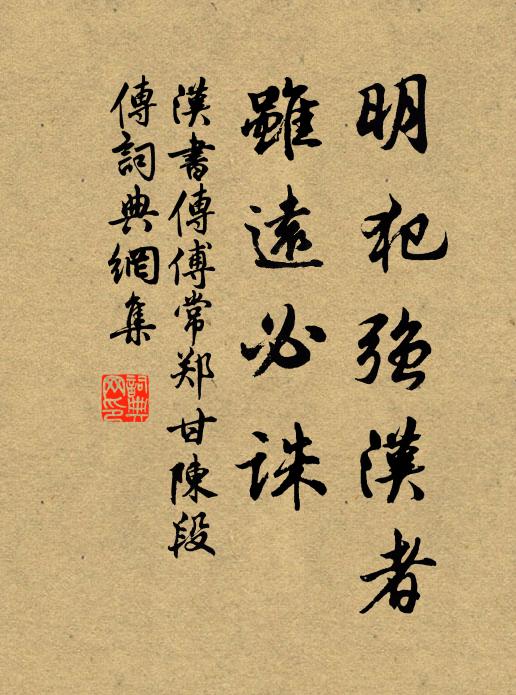 明犯強漢者
雖遠必誅
漢書傳傅常鄭甘陳段
傳詞典網集
詞典網印